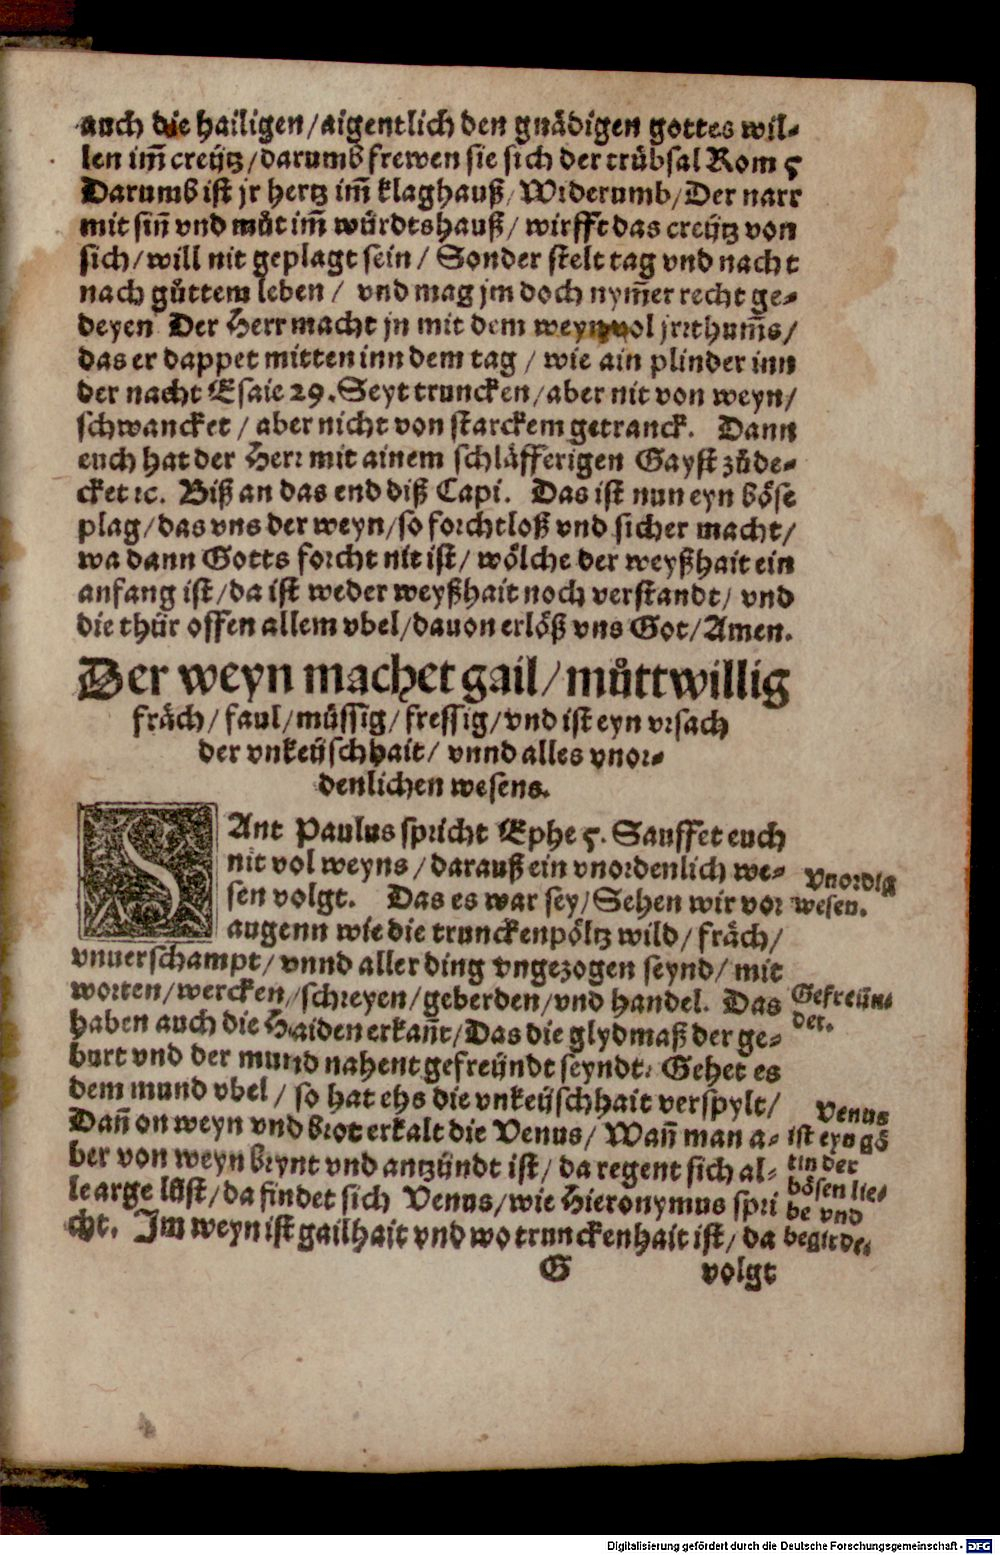 auch die hailigen/aigentlich den gnädigen gottes wil⸗
len im̃ creütz/darumb frewen sie sich der trübsal Rom 5
Darumb ist jr hertz im̃ klaghauß/Widerumb/Der narr
mit sin̄ vnd můt im̃ würdtshauß/wirfft das creütz von
sich/will nit geplagt sein/ Sonder stelt tag vnd nacht
nach gůttem leben/ vnd mag jm doch nym̃er recht ge⸗
deyen Der Herr macht jn mit dem weyn vol jrrthum̃s/
das er dappet mitten inn dem tag / wie ain plinder inn
der nacht Esaie 29. Seyt truncken/aber nit von weyn/
schwancket / aber nicht von starckem getranck. Dann
euch hat der Herr mit ainem schläfferigen Gayst zůde⸗
cket ꝛc. Biß an das end diß Capi. Das ist nun eyn böse
plag/das vns der weyn/so forchtloß vnd sicher macht/
wa dann Gotts forcht nit ist/ wölche der weyßhait ein
anfang ist/da ist weder weyßhait noch verstandt/ vnd
die thür offen allem vbel/dauon erlöß vns Got/Amen.
Der weyn machet gail/můttwillig
fräch/ faul/müssig/fressig/vnd ist eyn vrsach
der vnkeüschhait/ vnnd alles vnor⸗
denlichen wesens.
SAnt Paulus spricht Ephe 5. Sauffet euch
nit vol weyns/darauß ein vnordenlich we⸗
sen volgt. Das es war sey/Sehen wir vor
augenn wie die trunckenpöltz wild/fräch/
vnuerschampt/ vnnd aller ding vngezogen seynd/ mit
worten/wercken/schreyen/geberden/vnd handel. Das
haben auch die Haiden erkañt/Das die glydmaß der ge⸗
burt vnd der mund nahent gefreündt seyndt: Gehet es
dem mund vbel / so hat ehs die vnkeüschhait verspylt/
Dañ on weyn vnd brot erkalt die Venus/ Wañ man a⸗
ber von weyn brynt vnd antzündt ist/ da regent sich al⸗
le arge lüst/da findet sich Venus/wie Hieronymus spri
cht. Im weyn ist gailhait vnd wo trunckenhait ist/ da
G volgt
Vnordig
wesen.
Gefreün⸗
der.
Venus
ist eyn gö
tin der
bösen lie⸗
be vnd
begirde.
Digitalisierung gefördert durch die Deutsche Forschungsgemeinschaft - DFG